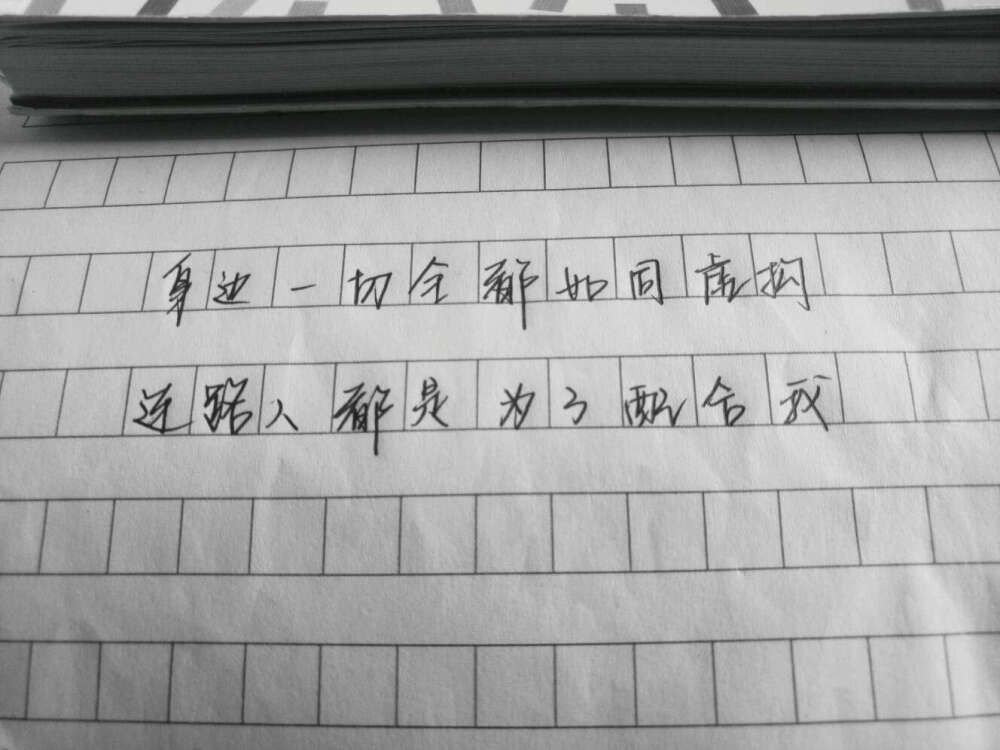 身边一切全都如同虚构
连路人都是为了配合我